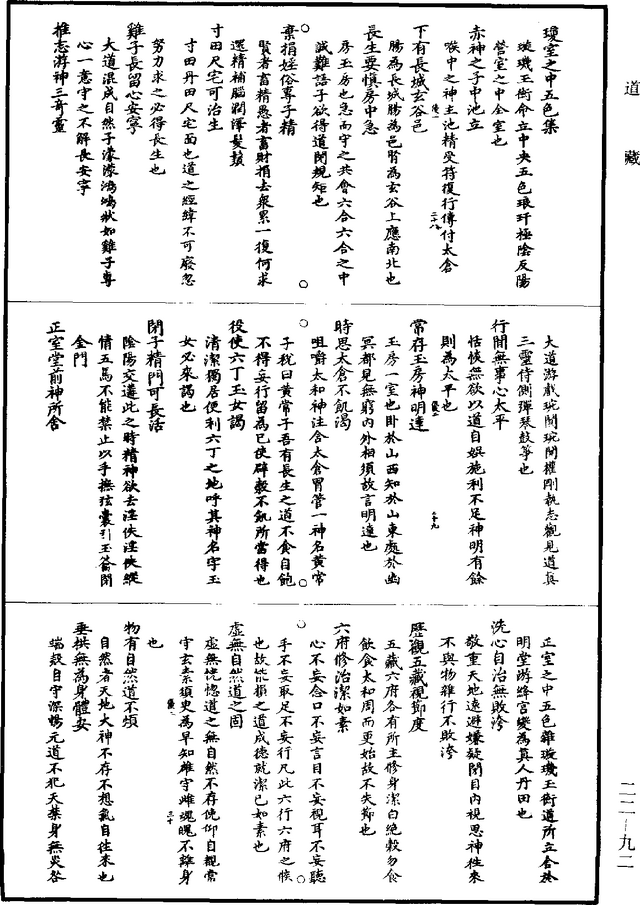 道藏
瓊室之中五色集
璇璣玉衡命立中央五色琅玕極陰反陽
營室之中全室也
赤神之子中池立
喉中之神主池精受符復行傳付太倉
下有長城玄谷邑
腸為長城腸為邑腎為玄谷上應南北也
長生要慎房中急
房玉房也急而守之共會六合六合之中
誠難語子欲得道閉規矩也
棄捐婬俗專子精
賢者畜精愚者畜財捐去衆累一復何求
還精補腦潤澤髮鬚
寸田尺宅可治生
寸田丹田尺宅面也道之經緯不可廢忽
努力求之必得長生也
雞子長留心安寧
大道混成自然子濛濛鴻鴻狀如雞子專
心一意守之不解長安寧
推志游神三奇靈
大道游戲琬間琬間權剛執志觀見道真
三靈侍側彈琴鼓箏也
行間無事心太平
恬惔無欲以道自娛施利不足神明有餘
則為太平也
常存玉房神明達
玉房一室也卧於山西知於山東處於幽
冥都見無窮內外相須故言明達也
時思太倉不飢渴
咀嚼太和神注含太倉胃管一神名黃常
子祝曰黃常子吾有長生之道不食自飽
不得妄行留為己使辟穀不飢所當得也
役使六丁玉女謁
清潔獨居便利六丁之地呼其神名字玉
女必來謁也
閉子精門可長活
陰陽交遘此之時精神欲去淫佚淫佚縱
情五馬不能禁止以手撫弦囊引玉籥閉
金門
正室堂前神所舍
正室之中五色雜璇璣玉衡道所立合於
明堂游絳宮變為真人丹田也
洗心自治無敗洿
敬重天地遠避嫌疑閉目內視思神往來
不與物雜行不敗洿
歷觀五藏視節度
五藏六府各有所主修身潔白絶穀勿食
飲食太和周而更始故不失節也
六府修治潔如素
心不妄念口不妄言目不妄視耳不妄聽
手不妄取足不妄行凡此六行六府之候
也故能損之道成德就潔已如素也
虛無自然道之固
虛無恍惚道之無自然不存俛仰自觀常
守玄素須史為早知雄守雌魂魄不離身
也
物有自然道不煩
自然者天地大神不存不想氣自往來也
垂拱無為身體安
端殻自守深暢元道不犯天禁身無災咎
二二—九二